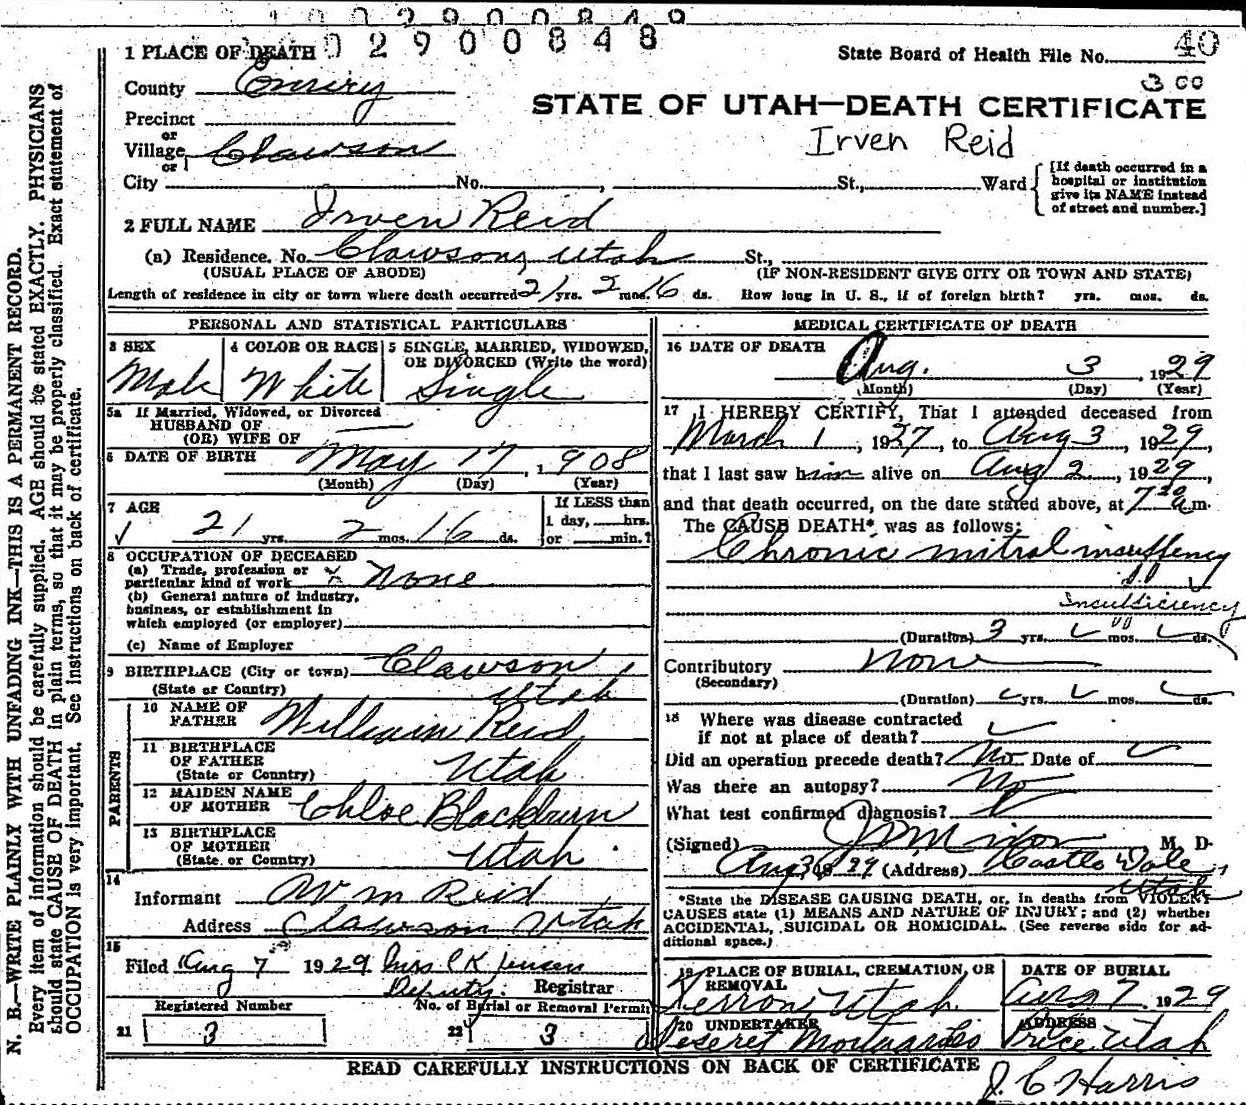 0 2 9 0 0 8 4 8
1 PLACE OF DEATH
State Board of Health File No. 40
County Emery
3 00
STATE OF UTAH—DEATH CERTIFICATE
Precinct
or
Irven Reid
Village Clawson
or
City No. , St., Ward
[If death occurred in a
hospital or institution
give its NAME instead
of street and number.]
2 FULL NAME Irven Reid
(a) Residence. No. Clawson, Utah St.,
(USUAL PLACE OF ABODE) (IF NON-RESIDENT GIVE CITY OR TOWN AND STATE)
Length of residence in city or town where death occurred 21 yrs. 2 mos. 16 ds. How long in U. S., if of foreign birth? yrs. mos. ds.
PERSONAL AND STATISTICAL PARTICULARS
3 SEX
Male
4 COLOR OR RACE
White
5 SINGLE, MARRIED, WIDOWED,
OR DIVORCED (Write the word)
Single
5a If Married, Widowed, or Divorced
HUSBAND OF
(OR) WIFE OF
6 DATE OF BIRTH May 17, 1908
(Month) (Day) (Year)
7 AGE
21 yrs. 2 mos. 16 ds.
If LESS than
1 day, hrs.
or min.?
8 OCCUPATION OF DECEASED
(a) Trade, profession or
particular kind of work None
(b) General nature of industry,
business, or establishment in
which employed (or employer)
(c) Name of Employer
9 BIRTHPLACE (City or town) Clawson
(State or Country) Utah
PARENTS
10 NAME OF
FATHER William Reid
11 BIRTHPLACE
OF FATHER
(State or Country) Utah
12 MAIDEN NAME
OF MOTHER Chloe Blackburn
13 BIRTHPLACE
OF MOTHER
(State or Country) Utah
14
Informant Wm Reid
Address Clawson Utah
15
Filed Aug 7 1929 Mrs C K Jensen
Deputy Registrar
Registered Number
21 3
No. of Burial or Removal Permit
22 3
MEDICAL CERTIFICATE OF DEATH
16 DATE OF DEATH
Aug. 3, 1929
(Month) (Day) (Year)
17 I HEREBY CERTIFY, That I attended deceased from
March 1, 1927, to Aug 3, 1929,
that I last saw him alive on Aug 2, 1929,
and that death occurred, on the date stated above, at 7 30 a m.
The CAUSE DEATH* was as follows:
Chronic mitral insuffency
Insufficiency
(Duration) 3 yrs. mos. ds.
Contributory None
(Secondary)
(Duration) yrs. mos. ds.
18 Where was disease contracted
if not at place of death?
Did an operation precede death? No Date of
Was there an autopsy? No
What test confirmed diagnosis?
(Signed) M D
Aug 3 1929 (Address) Castle Dale
Utah
*State the DISEASE CAUSING DEATH, or, in deaths from VIOLENT
CAUSES state (1) MEANS AND NATURE OF INJURY; and (2) whether
ACCIDENTAL, SUICIDAL OR HOMICIDAL. (See reverse side for ad-
ditional space.)
19 PLACE OF BURIAL, CREMATION, OR
REMOVAL
Ferron, Utah.
DATE OF BURIAL
Aug 7 1929
20 UNDERTAKER
Deseret Mortuaries
ADDRESS
Price, Utah
READ CAREFULLY INSTRUCTIONS ON BACK OF CERTIFICATE
J. C Harris
N. B.—WRITE PLAINLY WITH UNFADING INK—THIS IS A PERMANENT RECORD.
Every item of information should be carefully supplied. AGE should be stated EXACTLY. PHYSICIANS
should state CAUSE OF DEATH in plain terms, so that it may be properly classified. Exact statement of
OCCUPATION is very important. See instructions on back of certificate.